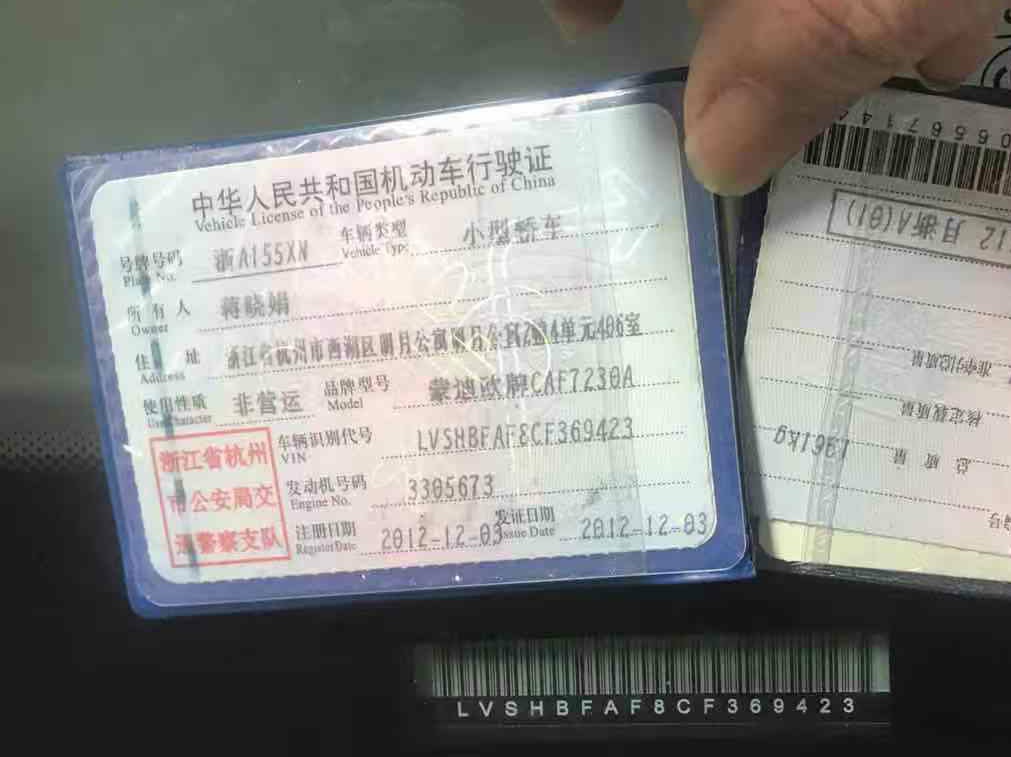 中华人民共和国机动车行驶证
Vehicle License of the People's Republic of China
号牌号码 浙A155XN 车辆类型 小型轿车
Plate No. Vehicle Type
所有人 蒋晓娟
Owner
住址 浙江省杭州市西湖区明月公寓明月公寓2幢4单元406室
Address
使用性质 非营运 品牌型号 蒙迪欧牌CAF7230A
Use Character Model
车辆识别代号 LVSHBFAF8CF369423
VIN
发动机号码 3305673
Engine No.
注册日期 2012-12-03 发证日期 2012-12-03
Register Date Issue Date
浙江省杭州
市公安局交
通警察支队
总质量 1961kg
核定载质量
准牵引总质量
12月浙A(01)
LVSHBFAF8CF369423